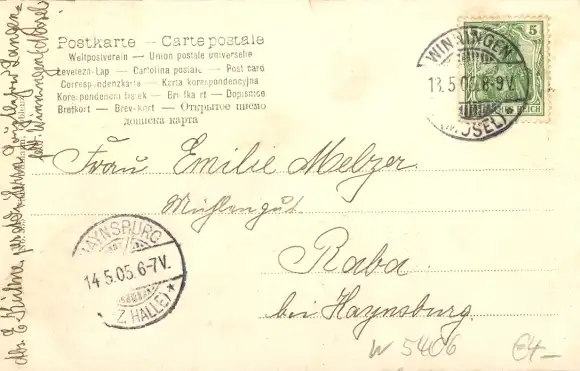 Postkarte — Carte postale
Weltpostverein — Union postale universelle
Levelezö-Lap — Cartolina postale — Post card
Correspondenzkarte — Karta korespondencyjna
Korespondenční lístek — Brefkart — Dopisnice
Brefkort — Brev-kort — Открытое письмо
дописна карта
WINNINGEN
13.5.05.8-9V.
(MOSEL)
5
REICH
Frau Emilie Melzer
Mühlengut
Raba
bei Haynsburg.
HAYNSBURG
14.5.05.6-7V.
HALLE)
W 5406 €4—
Abs. E.
Winningen (Mosel)